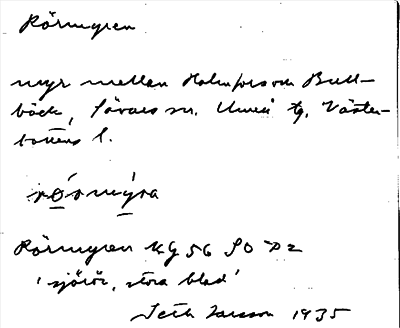 Rörmyren
myr mellan Holmfors och Bull-
bäck, Sävars sn. Umeå tg. Väster-
bottens l.
rö́rmýra
Rörmyren KG 56 SO D2
'sjörör, stora blad'
Seth Larsson 1935